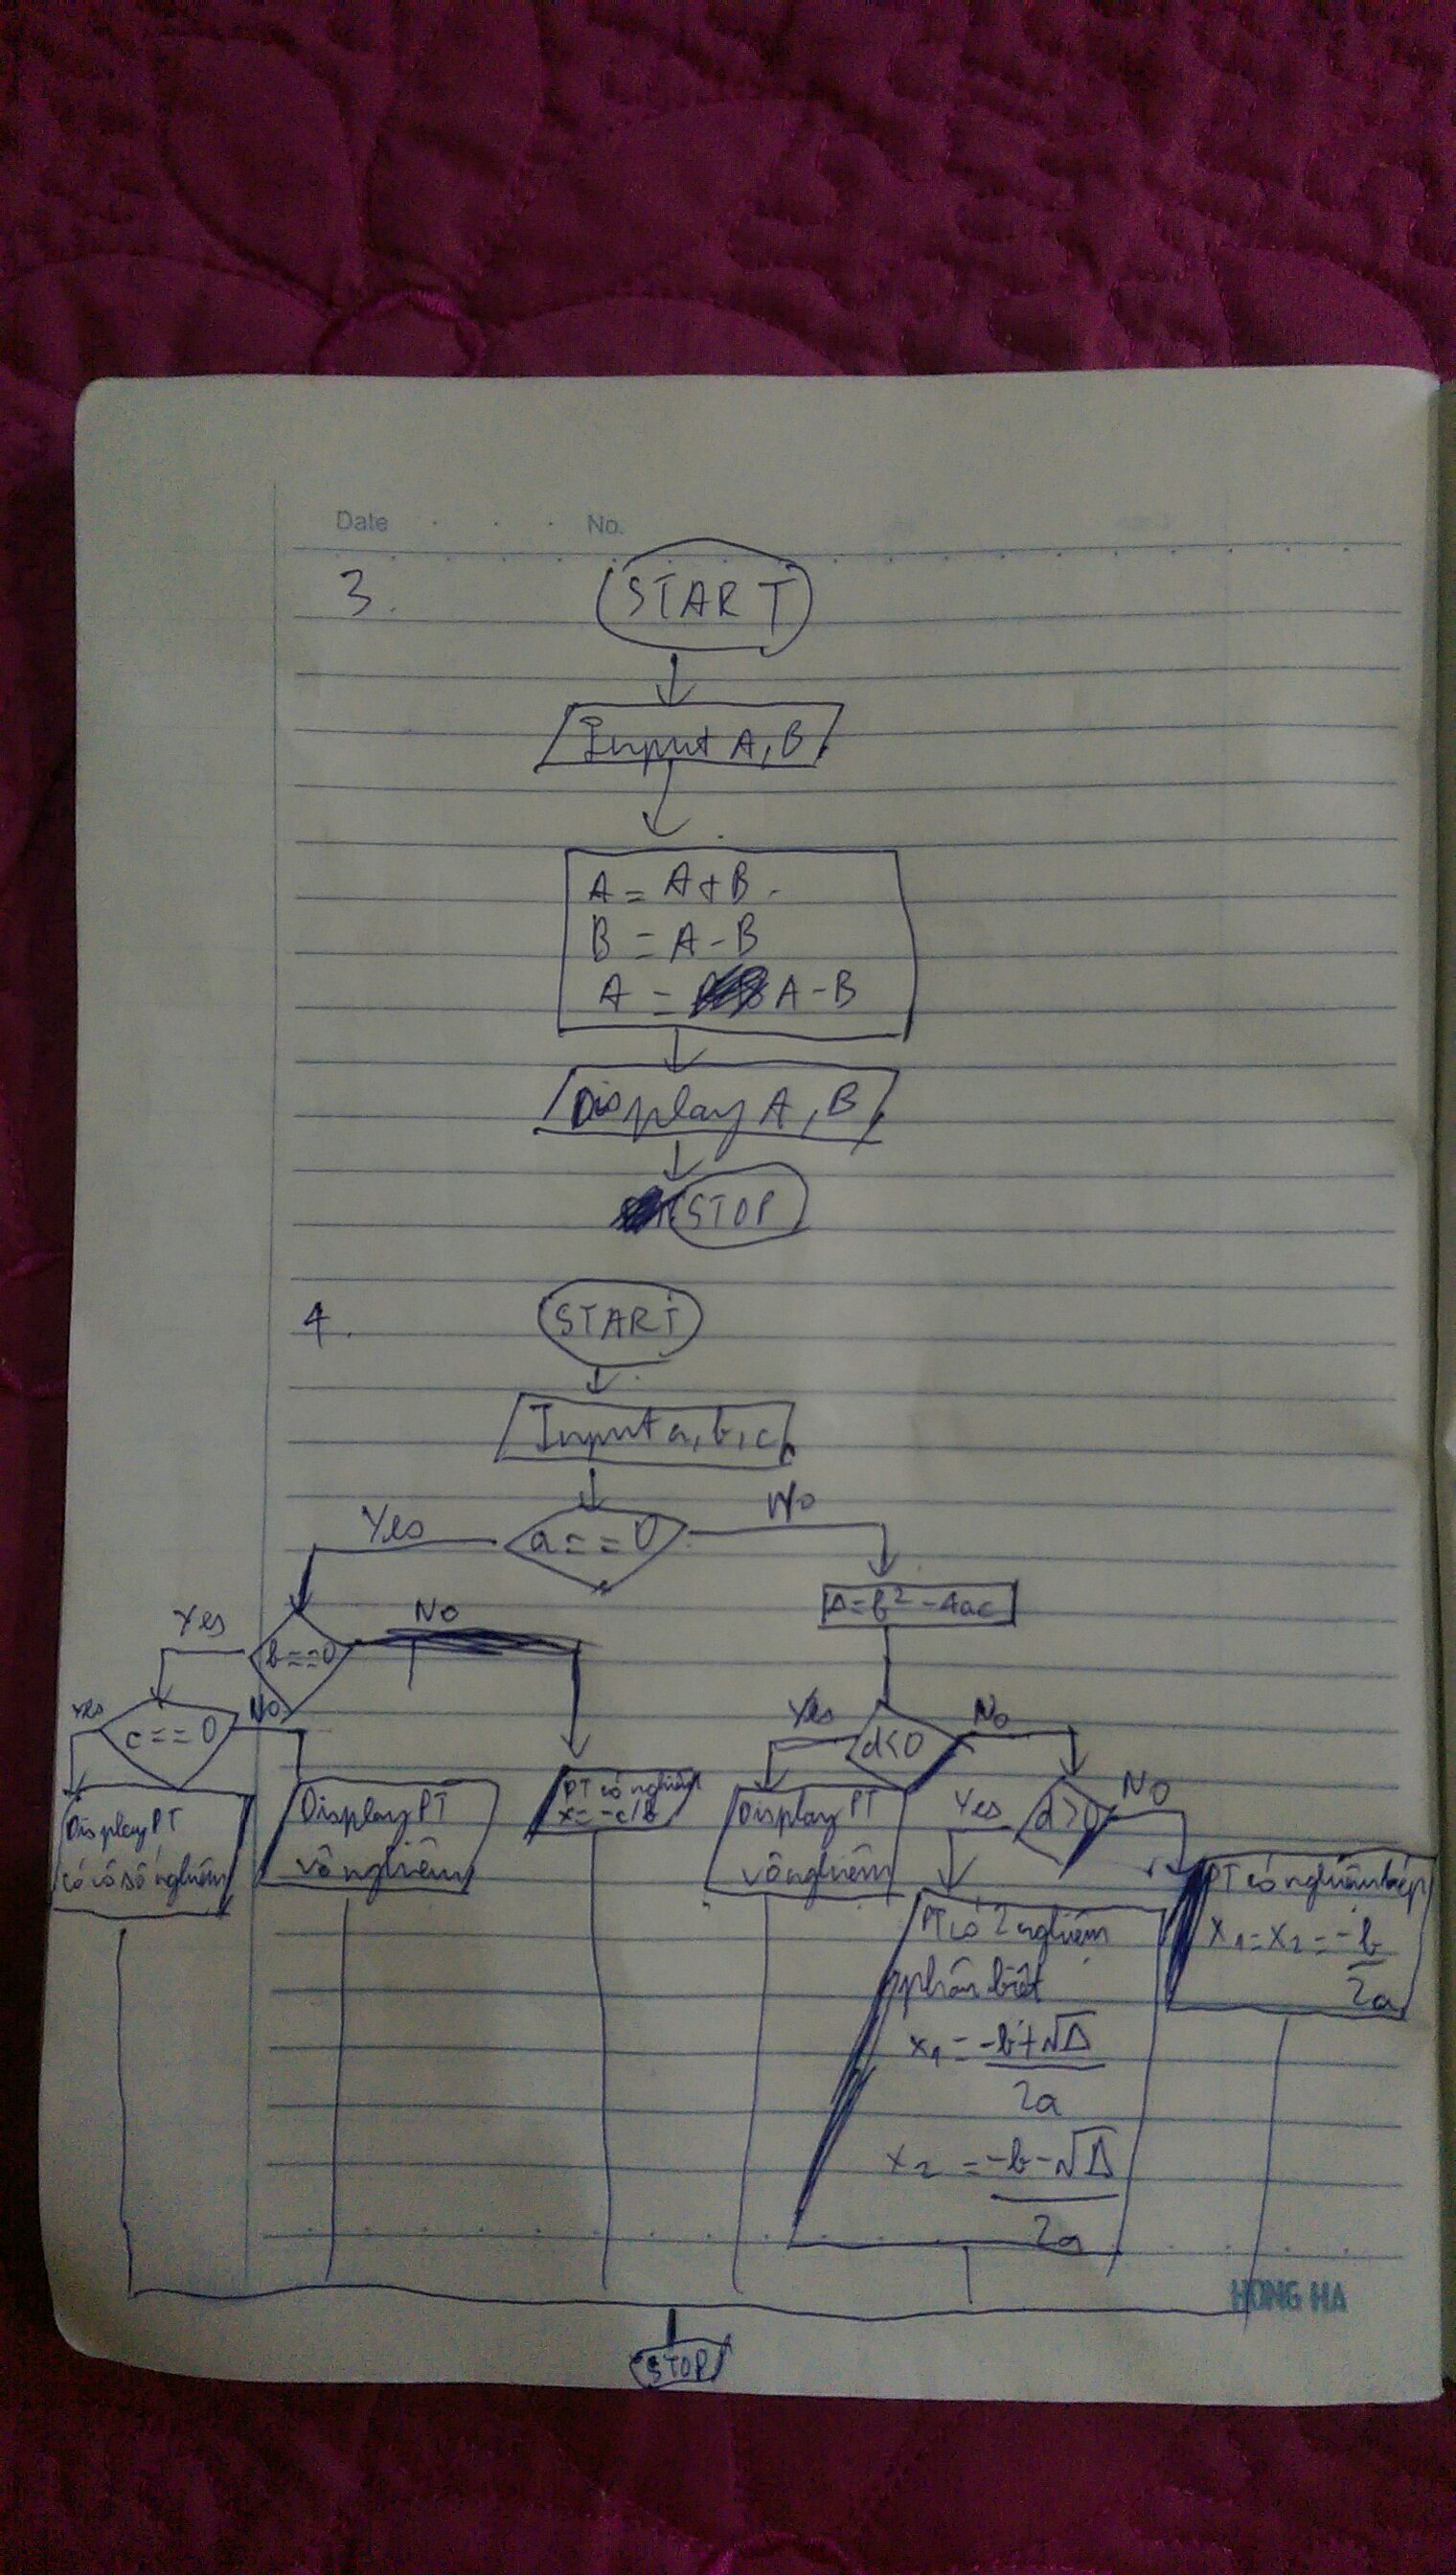 Date No.
3.
START
Input A, B
A = A + B
B = A - B
A = A - B
Display A, B
STOP
4.
START
Input a, b, c
a == 0
Yes
No
Δ = b² - 4ac
b == 0
Yes
No
c == 0
Yes
No
Display PT
có vô số nghiệm
Display PT
vô nghiệm
PT có nghiệm
x = -c/b
d<0
Yes
No
Display PT
vô nghiệm
d>0
Yes
NO
PT có 2 nghiệm
phân biệt
x₁ = -b+√Δ
2a
x₂ = -b-√Δ
2a
PT có nghiệm kép
x₁ = x₂ = -b
2a
STOP
HONG HA